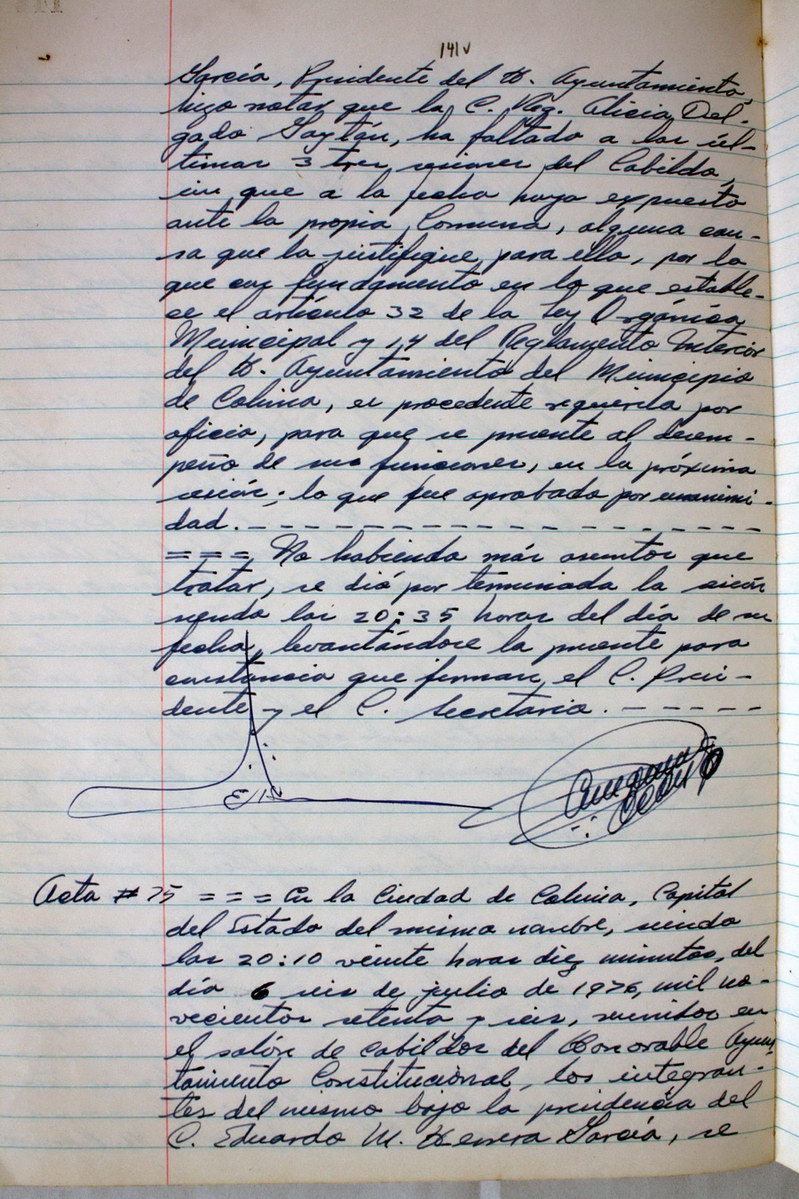 141v
García, Presidente del H. Ayuntamiento,
hizo notar que la C. Reg. Alicia Del-
gado Gaytán, ha faltado a las úl-
timas 3 tres sesiones del Cabildo,
sin que a la fecha haya expuesto
ante la propia Comuna, alguna cau-
sa que la justifique para ello, por lo
que con fundamento en lo que estable-
ce el artículo 32 de la Ley Orgánica
Municipal y 14 del Reglamento Interior
del H. Ayuntamiento del Municipio
de Colima, es procedente requerirla por
oficio, para que se presente al desem-
peño de sus funciones, en la próxima
sesión; lo que fue aprobado por unanimi-
dad. - - - - - - - - - - - - - - - - - -
= = = No habiendo más asuntos que
tratar, se dió por terminada la sesión
siendo las 20:35 horas del día de su
fecha, levantándose la presente para
constancia que firman, el C. Presi-
dente y el C. Secretario. - - - - -
Acta # 75 = = = En la Ciudad de Colima, Capital
del Estado del mismo nombre, siendo
las 20:10 veinte horas diez minutos, del
día 6 seis de julio de 1976, mil no-
vecientos setenta y seis, reunidos en
el salón de Cabildos del Honorable Ayun-
tamiento Constitucional, los integran-
tes del mismo bajo la presidencia del
C. Eduardo M. Herrera García, se